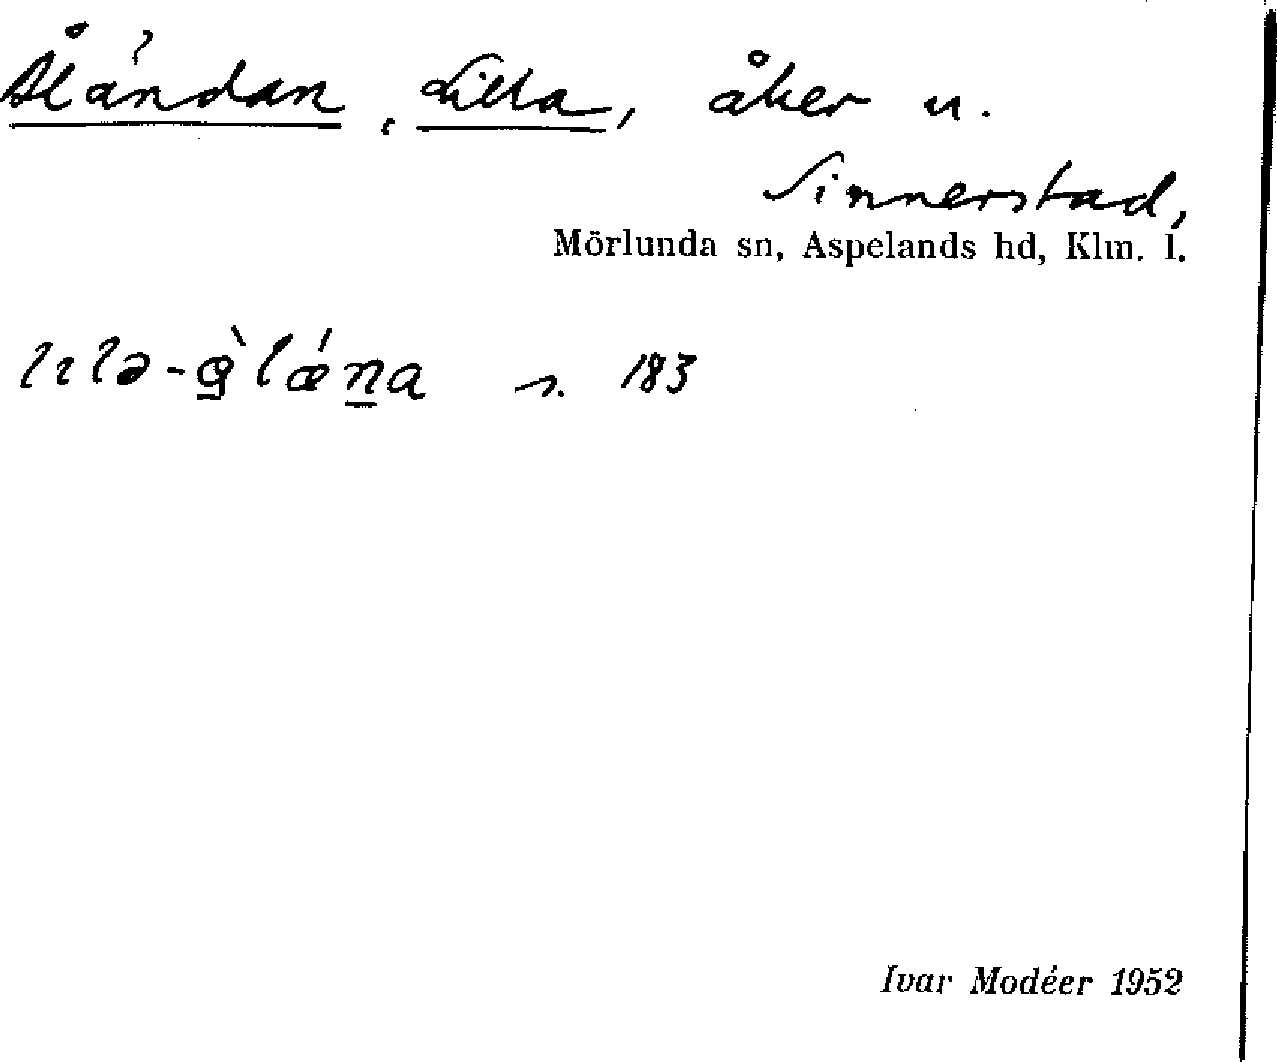 Åländan, Lilla, åker u.
Sinnerstad,
Mörlunda sn, Aspelands hd, Klm. l.
s. 183
Ivar Modéer 1952